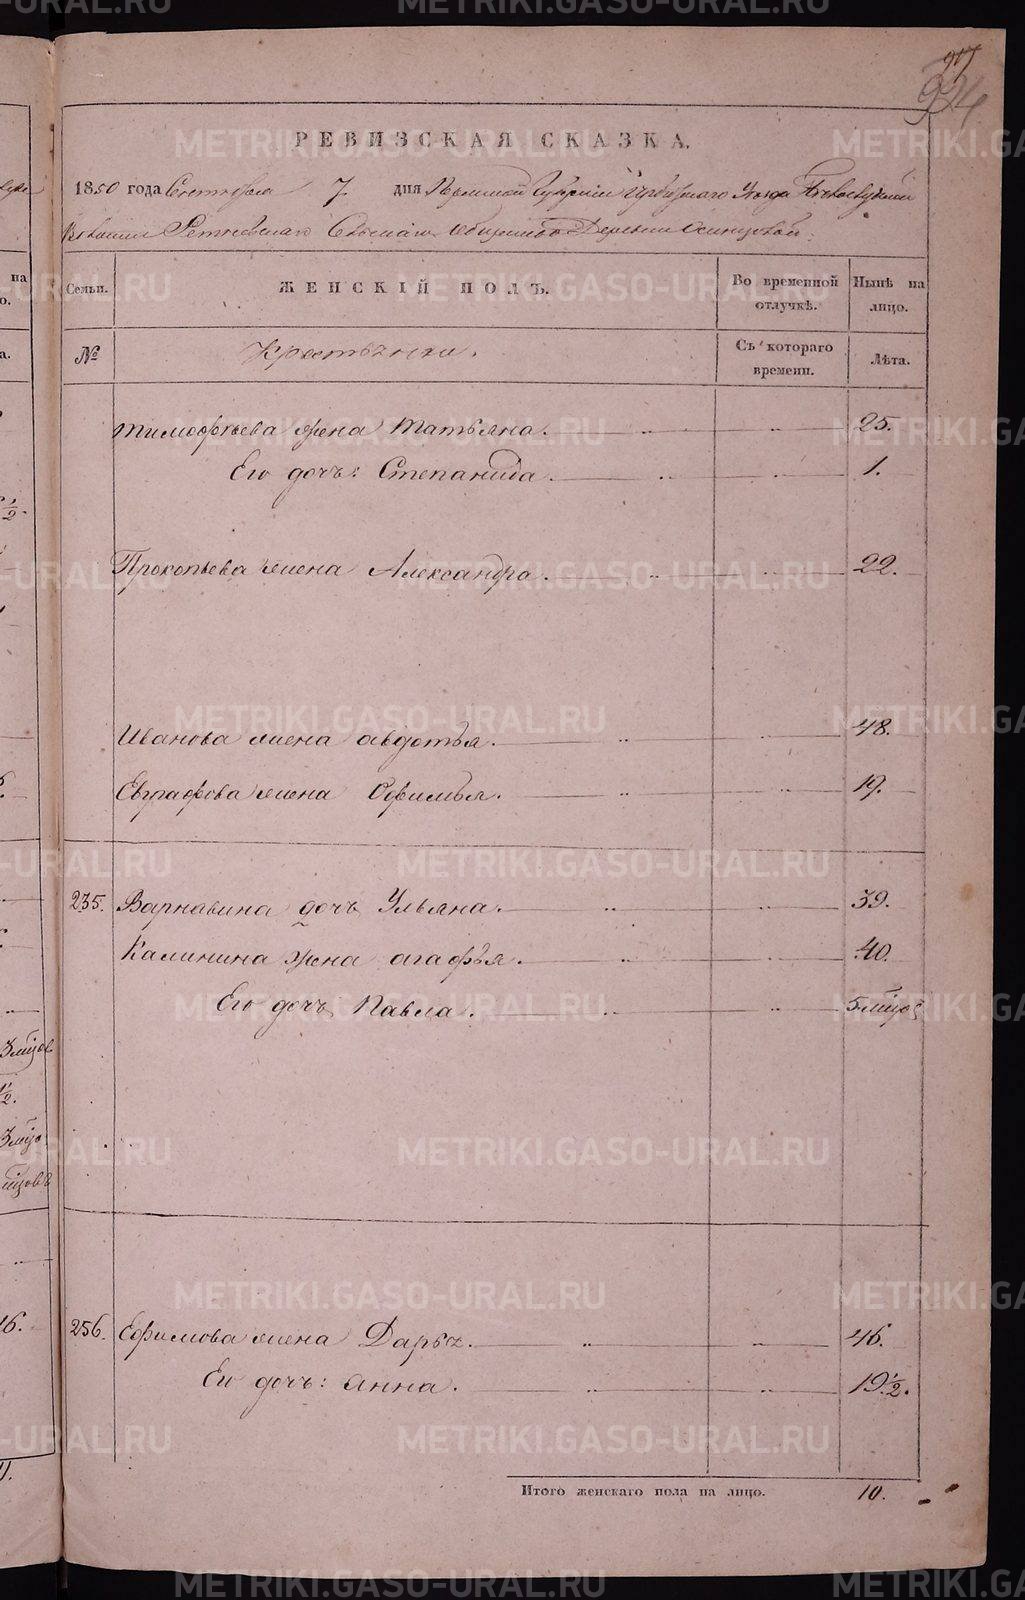 37
334
РЕВИЗСКАЯ СКАЗКА.
1850 года Сентября 7 дня Пермской Губернии Ирбитскаго Уезда
Волости Ретневскаго Сельскаго Общества Деревни Осинцовой.
Семьи.
ЖЕНСКІЙ ПОЛЪ.
Во временной отлучкѣ.
Нынѣ на лицо.
№
Крестьянки.
Съ котораго времени.
Лѣта.
Тимофѣева жена Татьяна. 25.
Его дочь: Степанида. 1.
Прокопьева жена Александра. 22.
Иванова жена Авдотья. 48.
Евграфова жена Офимья. 19.
235. Варнавина дочь Ульяна. 39.
Калинина жена Агафья. 40.
Его дочь Павла. 5 мѣцов
256. Ефимова жена Дарья. 46.
Его дочь: Анна. 19 1/2.
Итого женскаго пола на лицо. 10.
METRIKI.GASO-URAL.RU